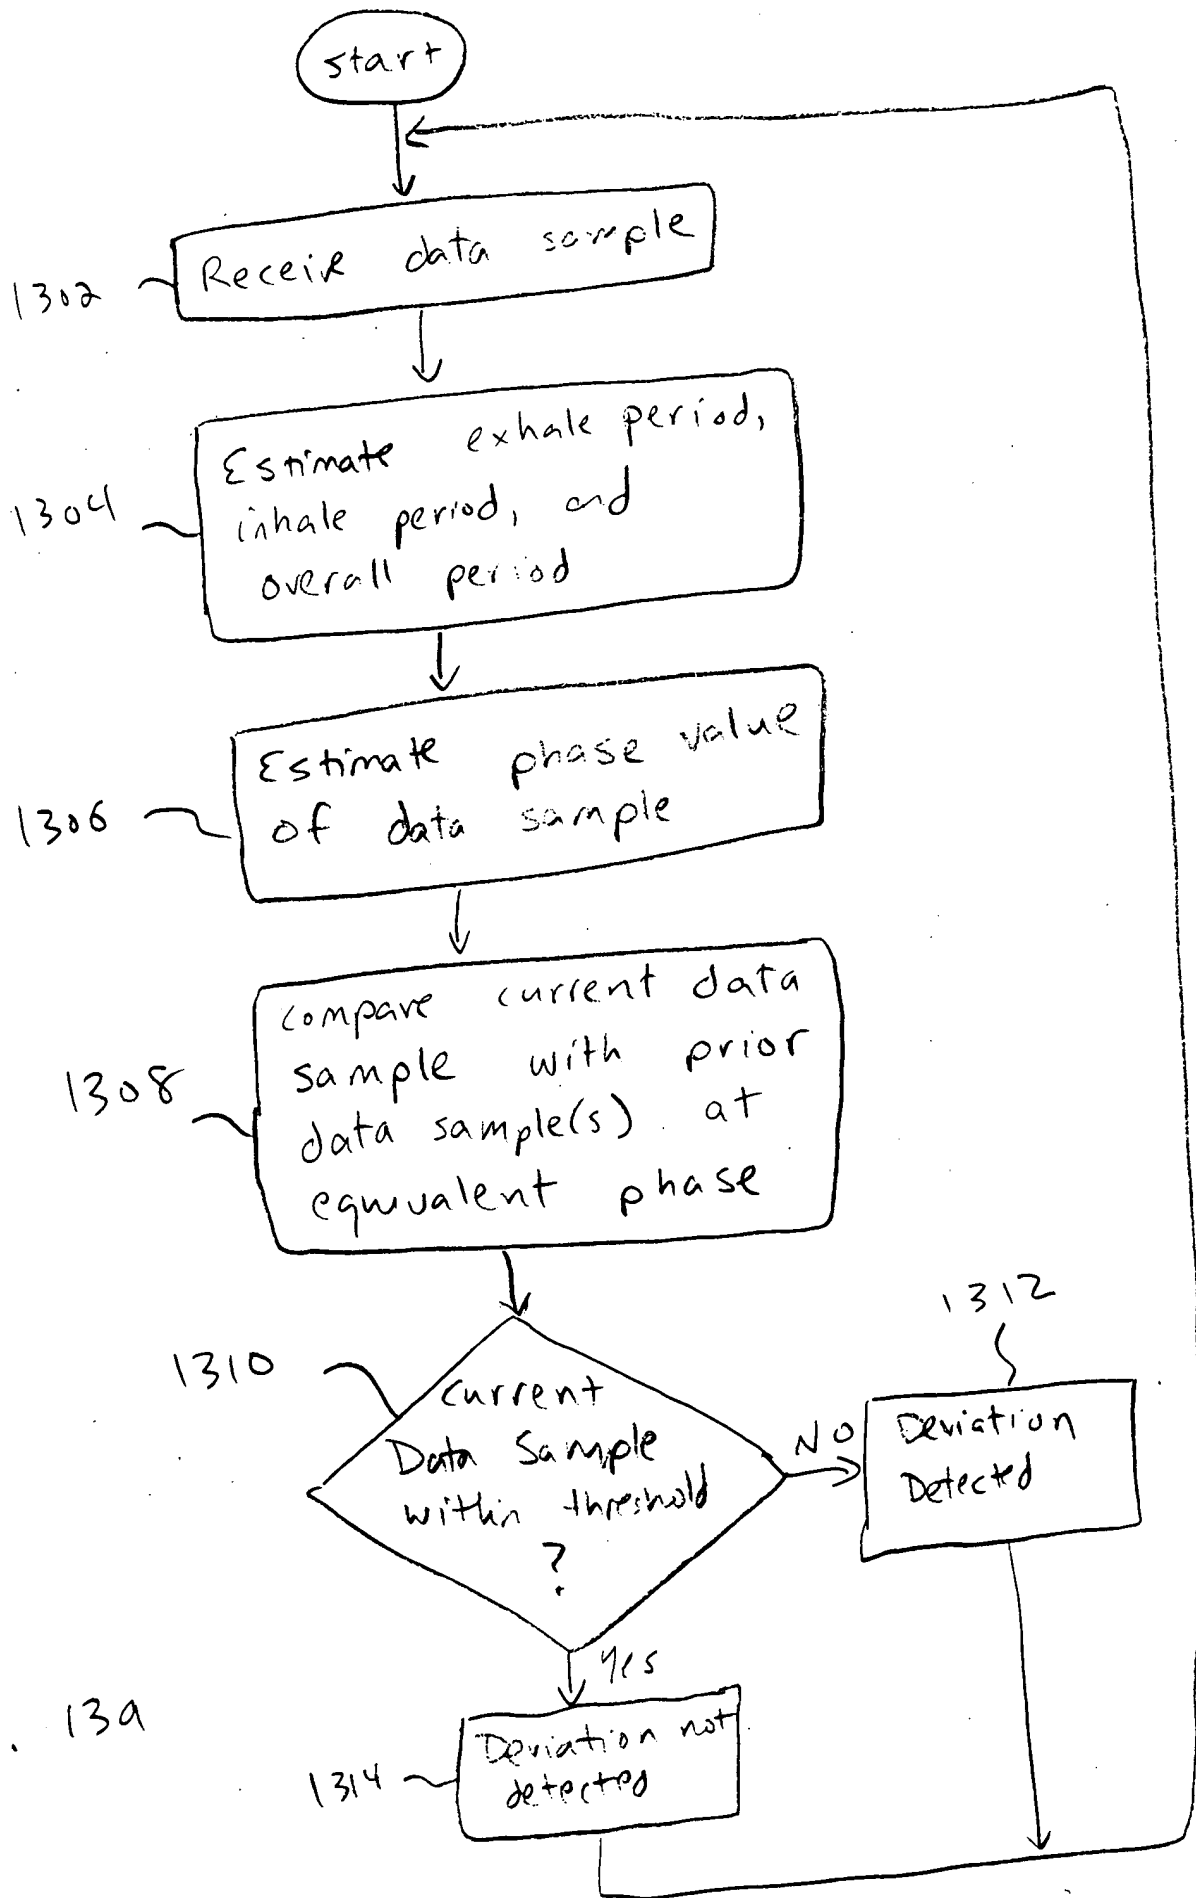 start
Receive data sample
1302
Estimate exhale period,
inhale period, and
overall period
1304
Estimate phase value
of data sample
1306
Compare current data
sample with prior
data sample(s) at
equivalent phase
1308
1310
Current
Data Sample
within threshold
?
NO
1312
Deviation
Detected
Yes
Deviation not
detected
1314
. 13a